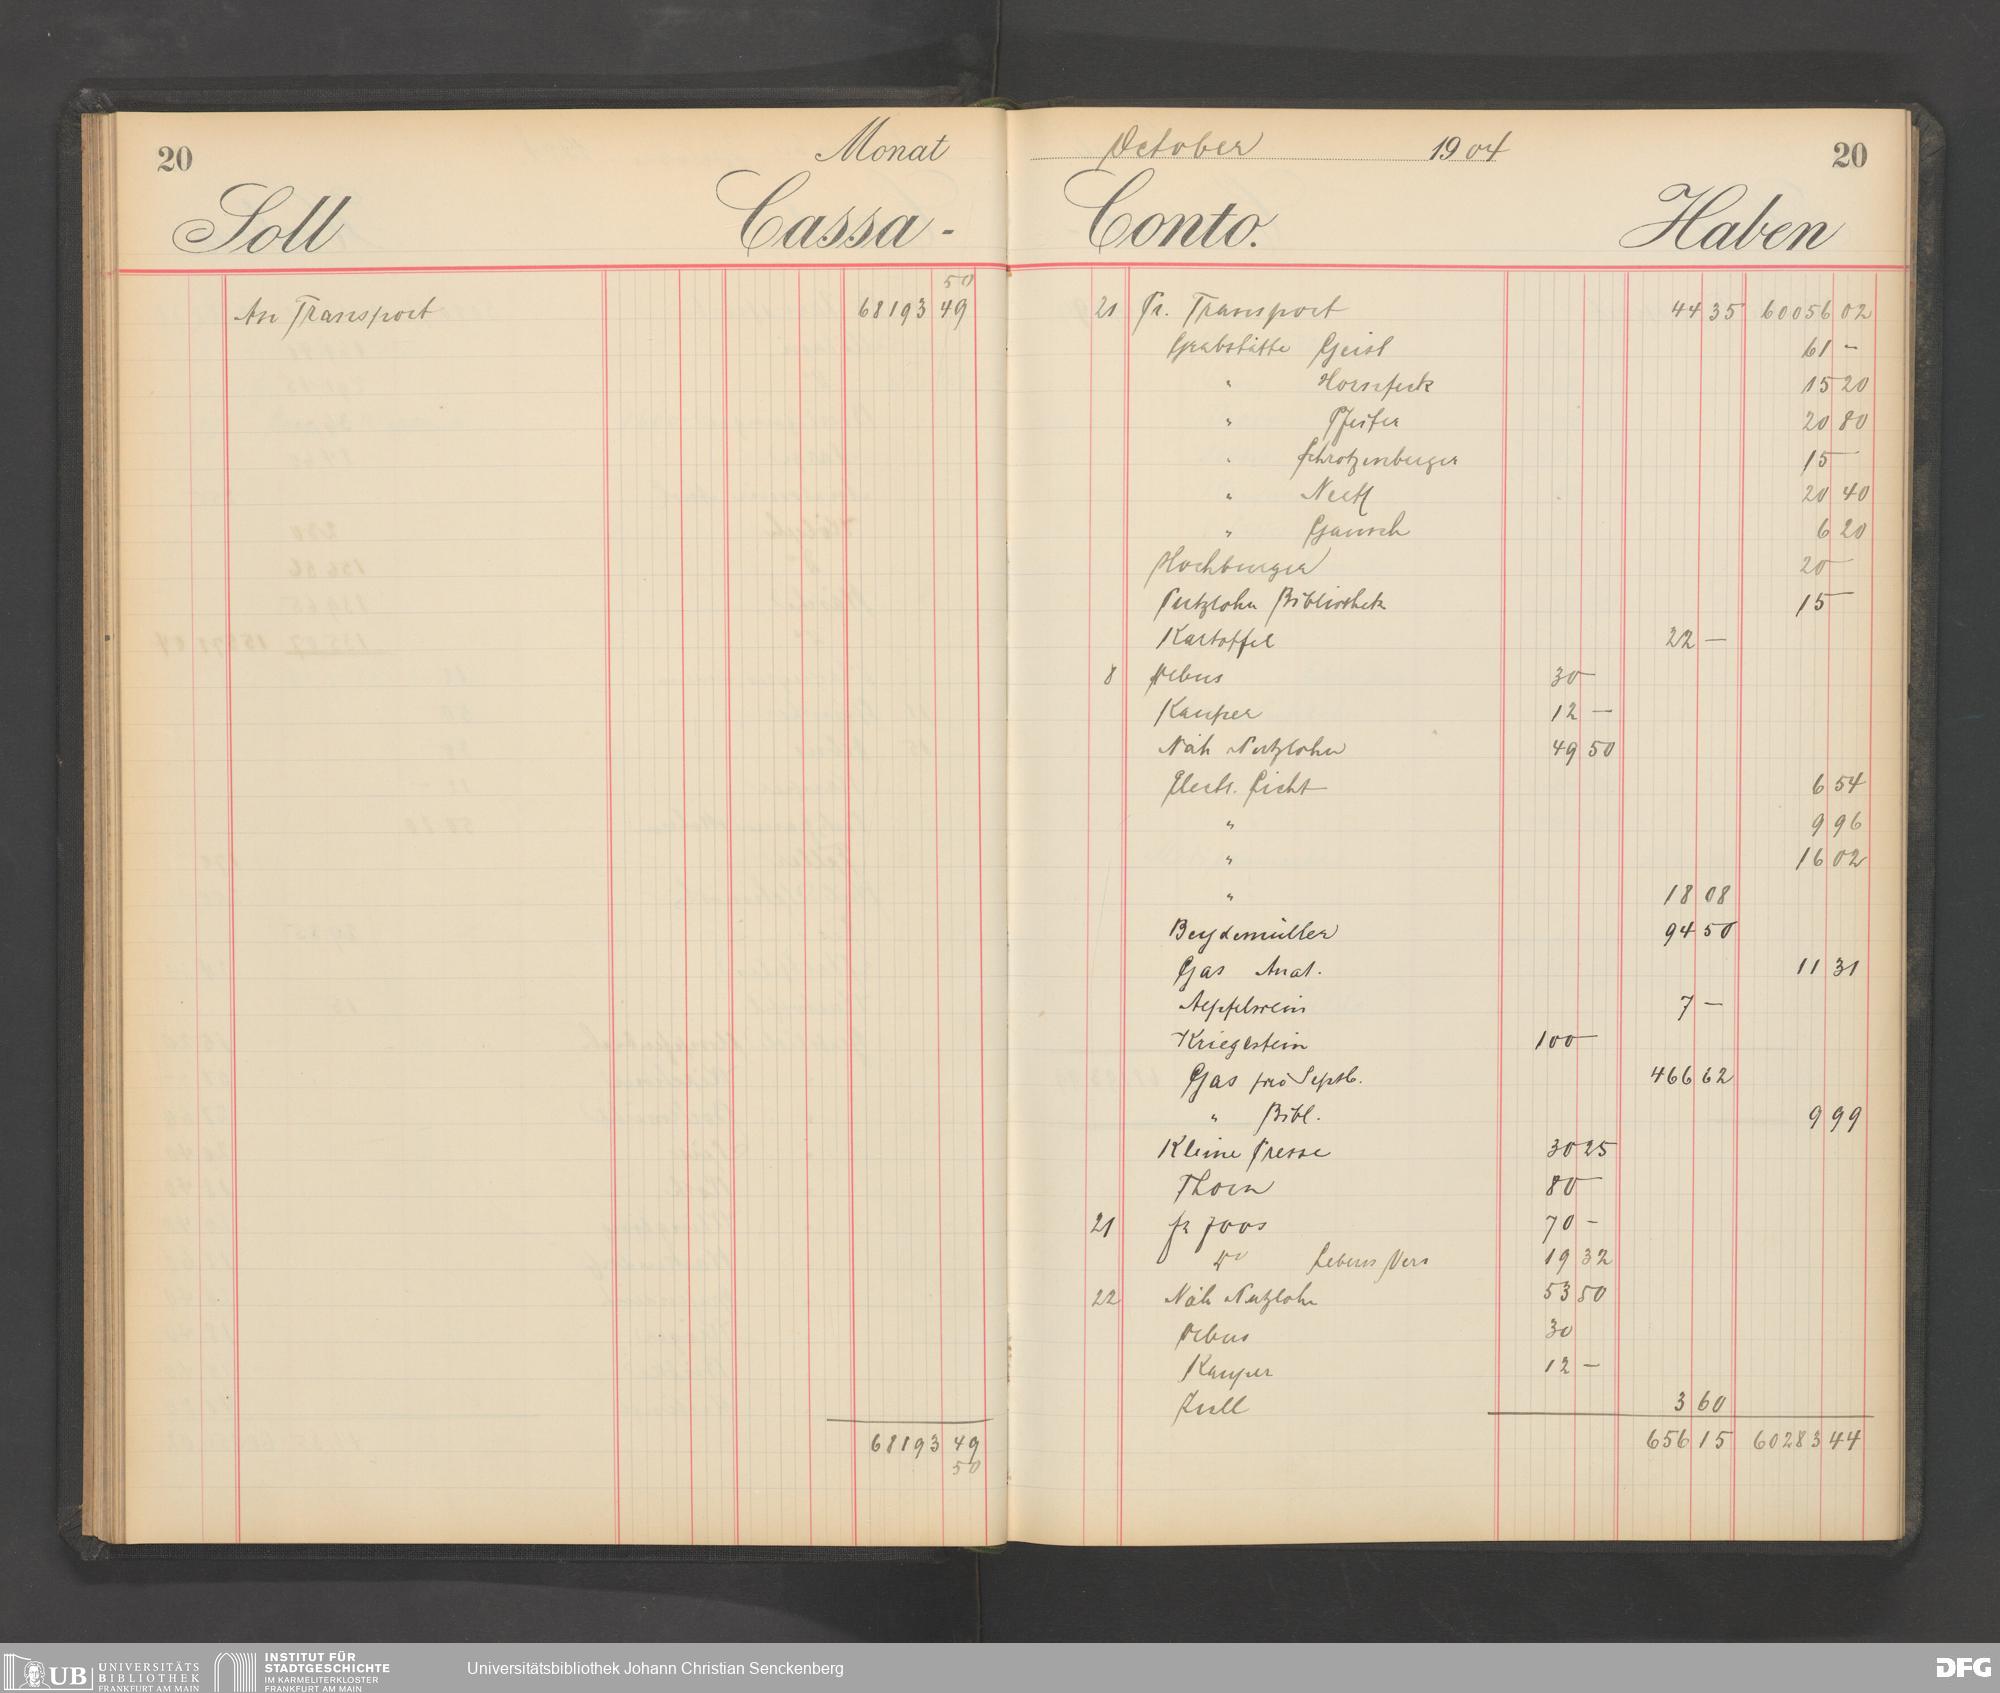 20
Monat
October 1904
20
Soll
Cassa-
Conto.
Haben
50
An Transport 68193 49
68193 49
50
21 Pr. Transport 44 35 60056 02
Grabstätte Geist 61 -
" Hornfeck 15 20
" Pfeifer 20 80
" Schrotzenberger 15 -
" Neeff 20 40
" 6 20
Hochburger 20 -
Putzlohn Bibliothek 15 -
Kartoffel 22 -
8 Debus 30 -
Kauper 12 -
Näh Putzlohn 49 50
Electr. Licht 6 54
" 9 96
" 16 02
" 18 08
Beydemüller 94 50
Gas Anat. 11 31
Aepfelwein 7 -
Krieglstein 100 -
Gas pro Septb. 466 62
" Bibl. 9 99
Kleine Presse 30 25
Thorn 80 -
21 fr Joos 70 -
do Lebens Vers 19 32
22 Näh Putzlohn 53 50
Debus 30
Kauper 12 -
Zoll 3 60
656 15 60283 44
UB UNIVERSITÄTS
BIBLIOTHEK
FRANKFURT AM MAIN
INSTITUT FÜR
STADTGESCHICHTE
IM KARMELITERKLOSTER
FRANKFURT AM MAIN
Universitätsbibliothek Johann Christian Senckenberg
DFG